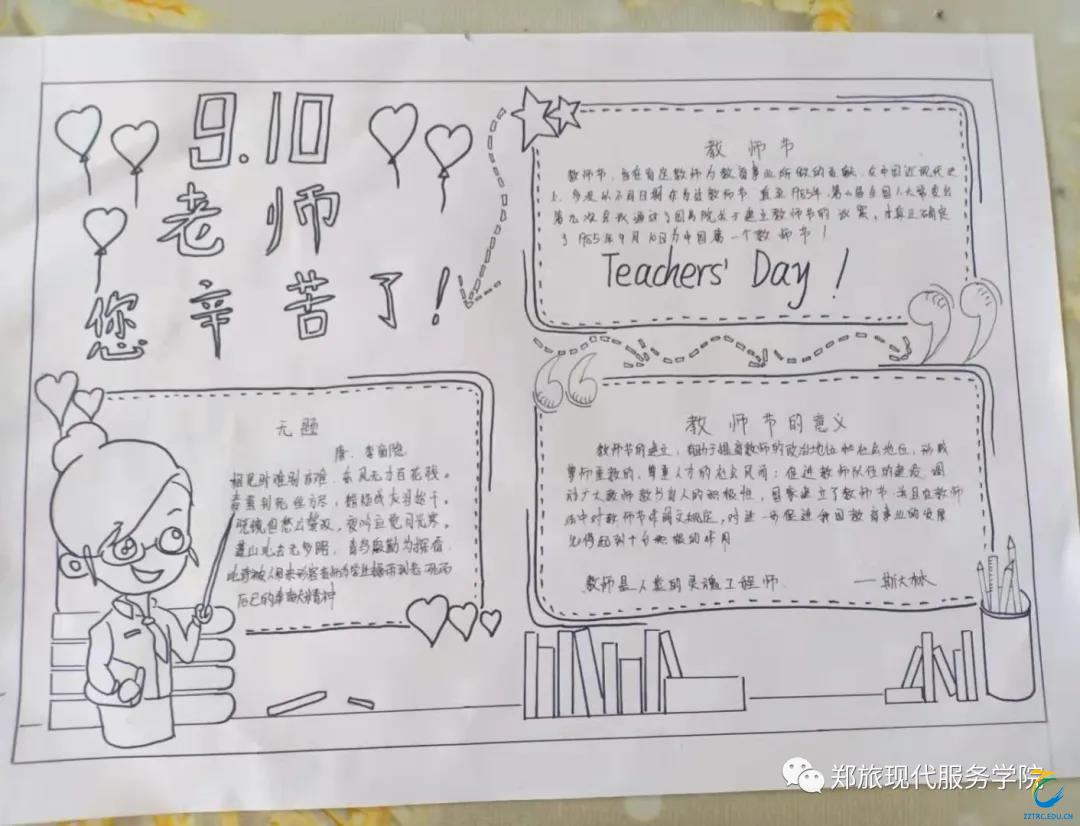 9.10
老师
您辛苦了!
教师节
教师节,旨在肯定教师为教育事业所做的贡献。在中国近现代史
上,多次以不同日期作为过教师节。直至1985年,第六届全国人大常委会
第九次会议通过了国务院关于建立教师节的议案,才真正确定
了1985年9月10日为中国第一个教师节!
Teachers' Day!
无题
唐·李商隐
相见时难别亦难,东风无力百花残。
春蚕到死丝方尽,蜡炬成灰泪始干。
晓镜但愁云鬓改,夜吟应觉月光寒。
蓬山此去无多路,青鸟殷勤为探看。
此诗被人用来形容老师为学生操劳到老,死而
后已的奉献精神
教师节的意义
教师节的建立,有助于提高教师的政治地位和社会地位,形成
尊师重教的,尊重人才的社会风尚;促进教师队伍的建设,调
动广大教师教书育人的积极性,国家建立了教师节,并且在教师
法中对教师节作明文规定,对进一步促进我国教育事业的发展
必将起到十分积极的作用
教师是人类的灵魂工程师
——斯大林
郑旅现代服务学院
ZZTRC.EDU.CN